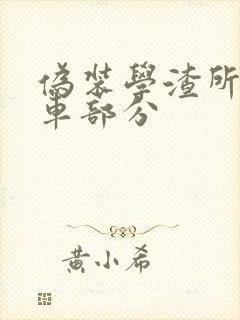 偽裝學渣所
車部分
黃小希